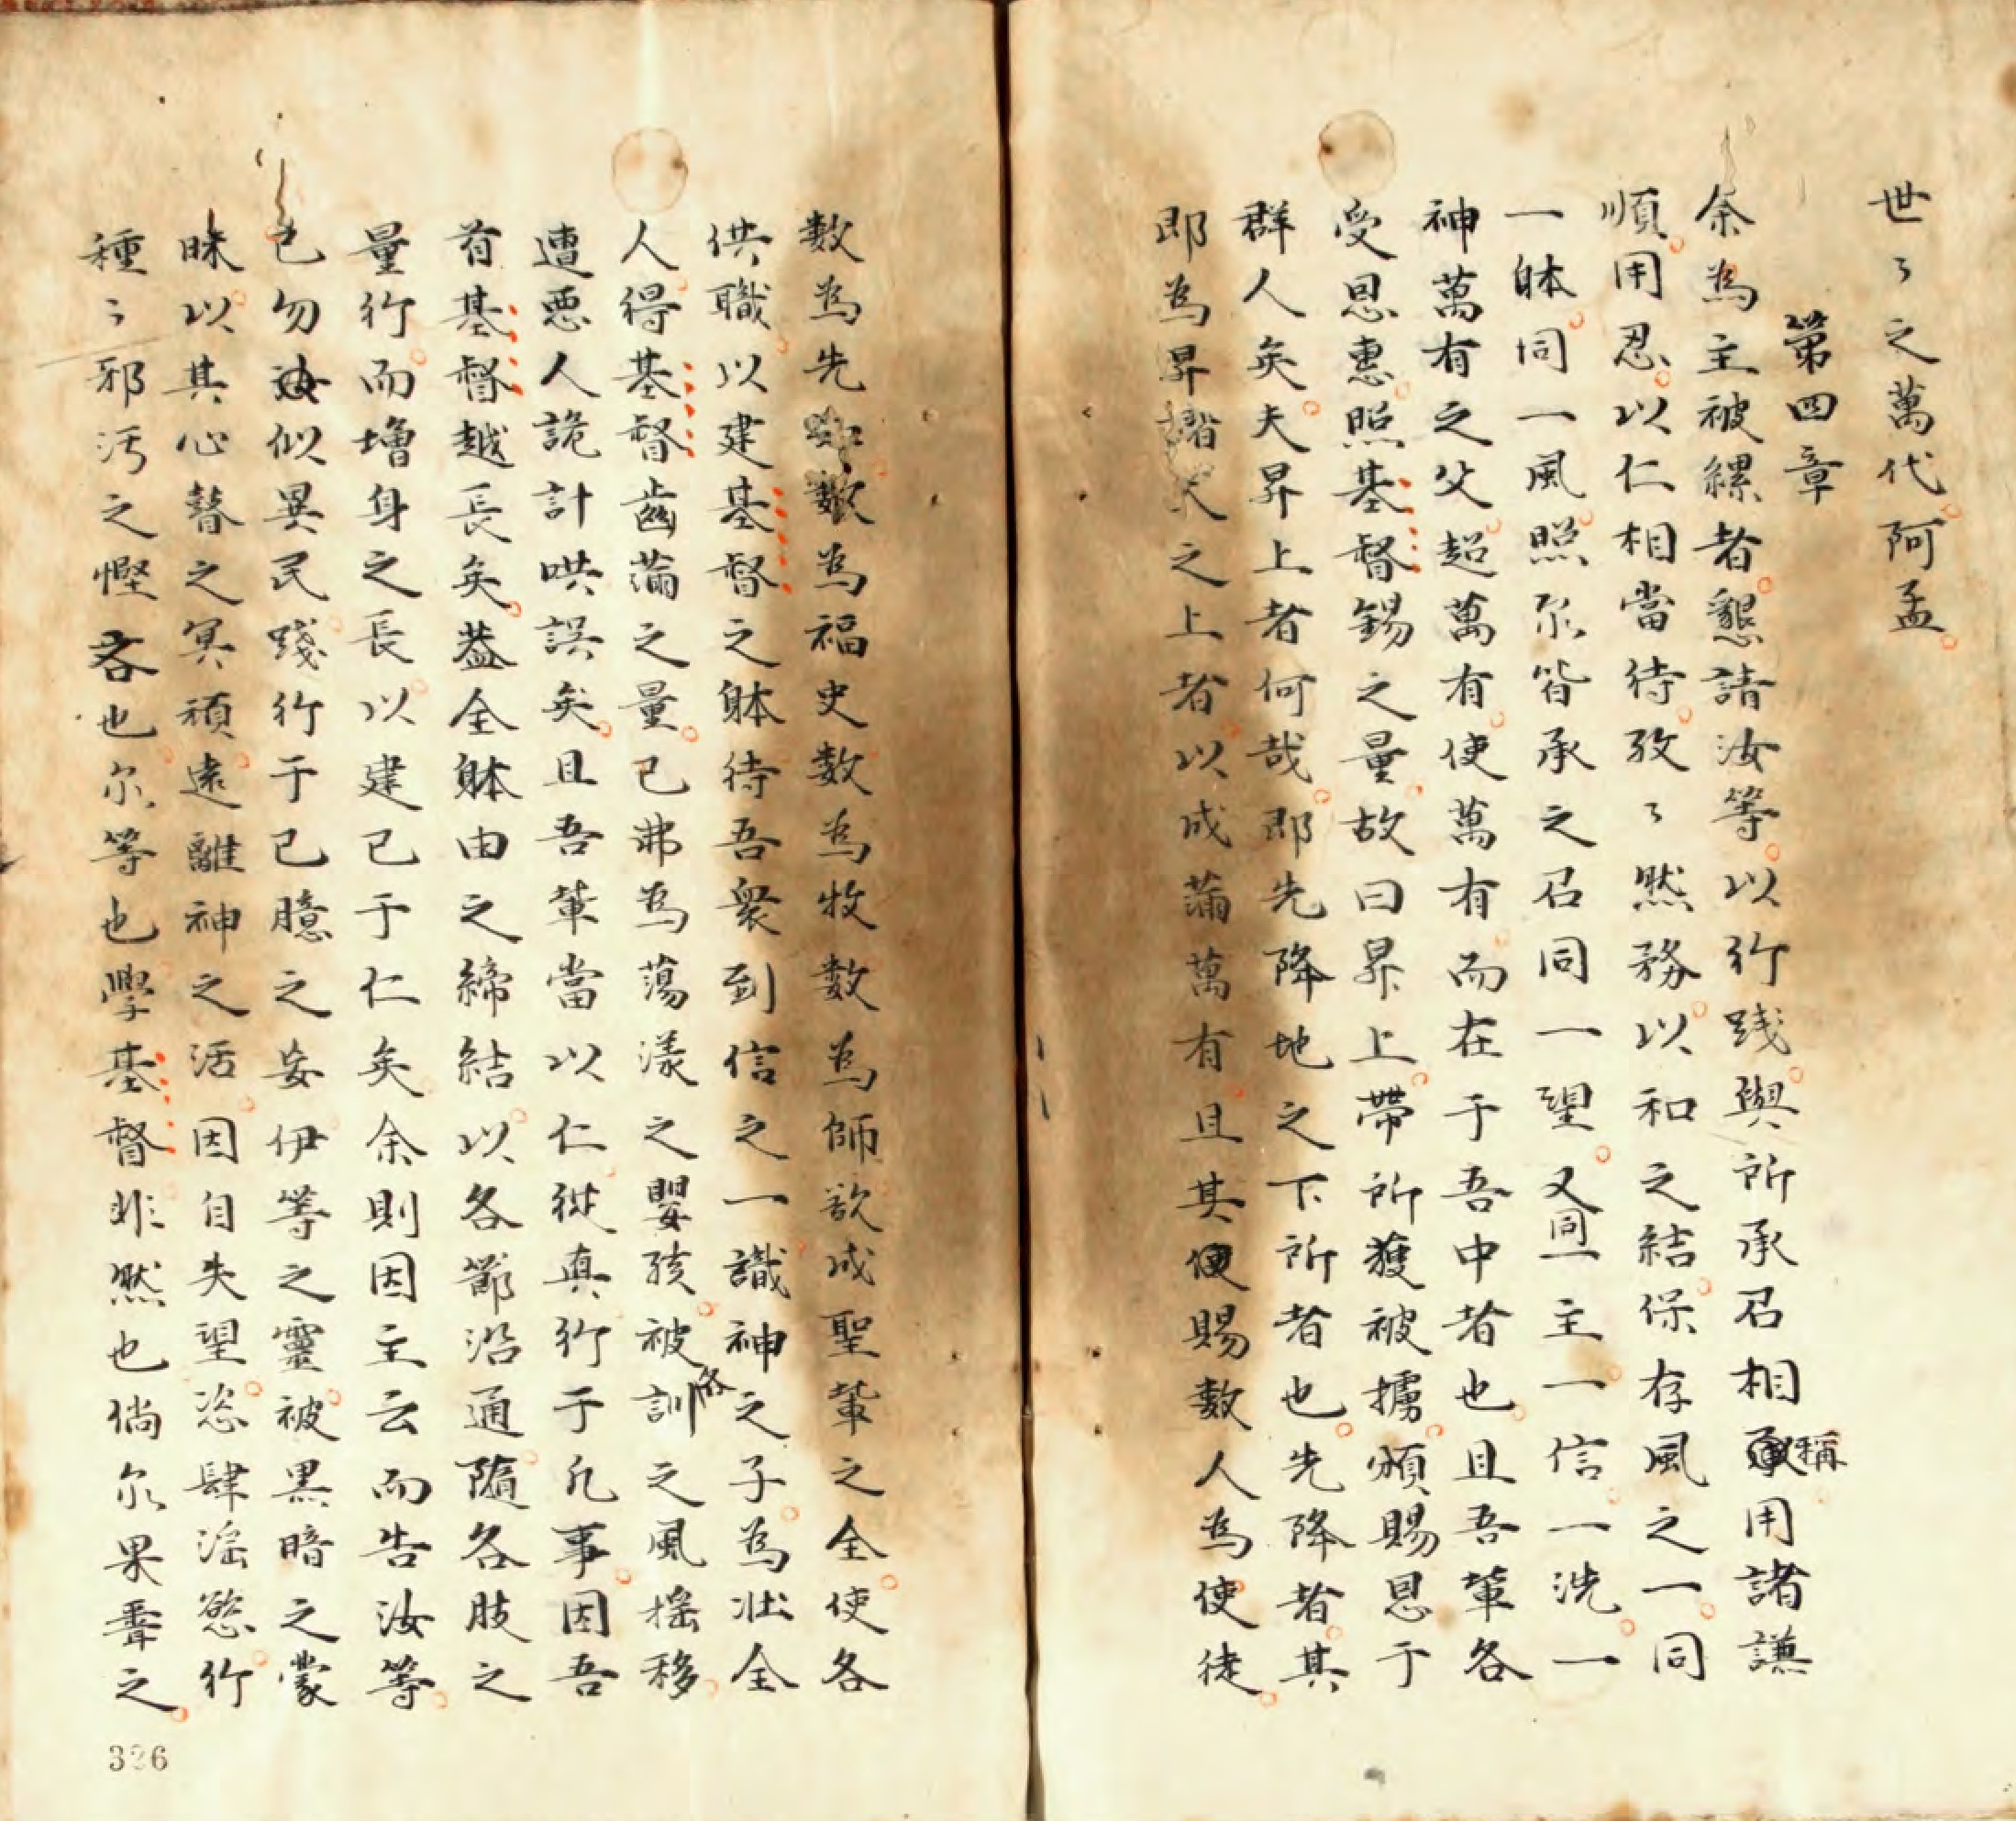 世〻之萬代阿孟
第四章
余為主被縲者懇請汝等以行踐與所承召相稱用諸謙
順用忍以仁相當待孜〻然務以和之結保存風之一同
一躰同一風照尔皆承之召同一望又同一主一信一洗一
神萬有之父超萬有使萬有而在于吾中者也且吾輩各
受恩惠照基督錫之量故曰昇上帶所獲被擄頒賜恩于
群人矣夫昇上者何哉即先降地之下所者也先降者其
即為昇諸天之上者以成滿萬有且其賜數人為使徒
數為先知數為福史數為牧數為師欲成聖輩之全使各
供職以建基督之躰待吾眾到信之一識神之子為壯全
人得基督齒滿之量已弗為蕩漾之嬰孩被各訓之風搖移
遭惡人詭計哄誤矣且吾輩當以仁從真行于凡事因吾
首基督越長矣葢全躰由之締結以各節沿通隨各肢之
量行而增身之長以建己于仁矣余則因主云而告汝等
已勿似異民踐行于己臆之妄伊等之靈被黑暗之蒙
昧以其心瞽之冥頑遠離神之活因自失望恣肆淫慾行
種〻邪污之慳吝也尔等也學基督非然也倘尔果聽之
336